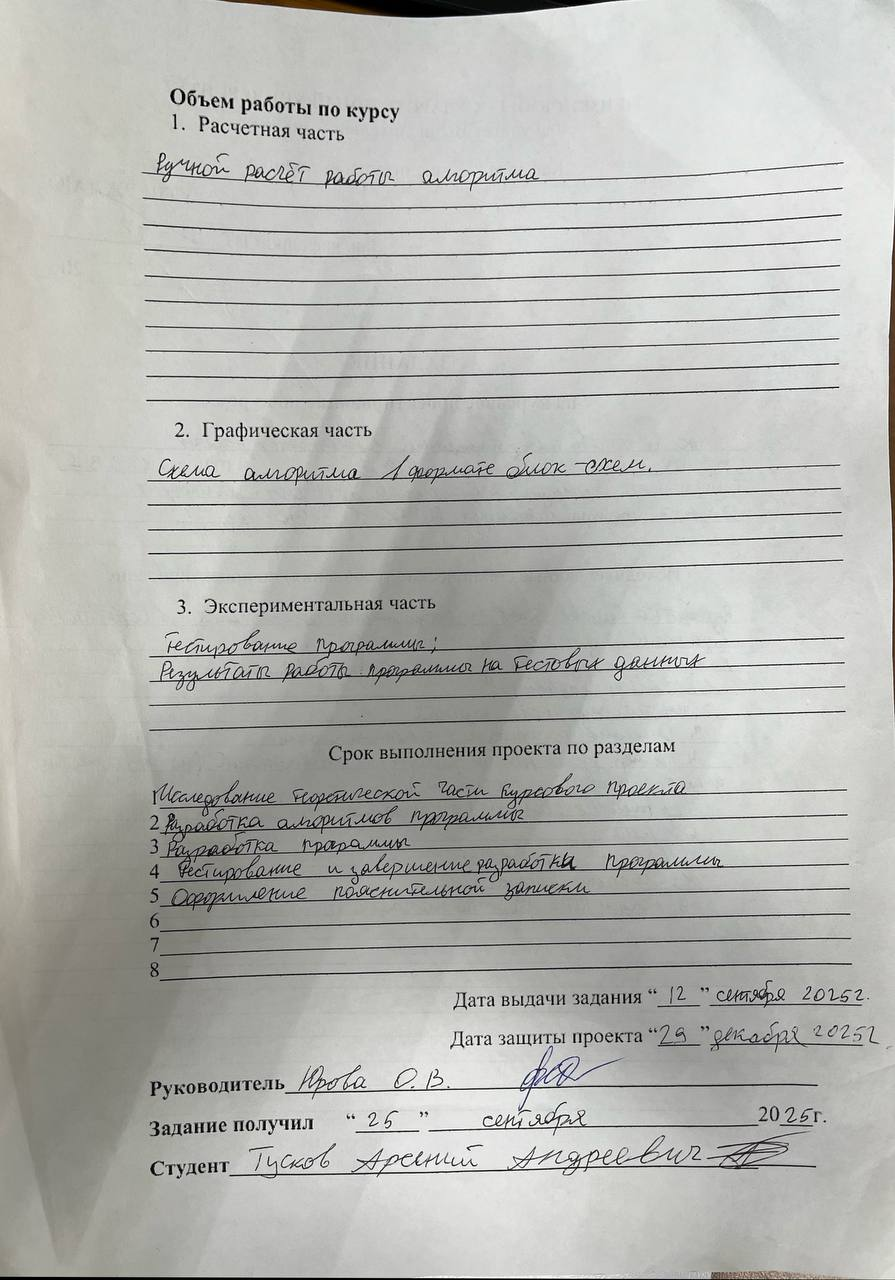 Объем работы по курсу
1. Расчетная часть
Ручной расчёт работы алгоритма
2. Графическая часть
Схема алгоритма в формате блок-схем.
3. Экспериментальная часть
Тестирование программы;
Результаты работы программы на тестовых данных
Срок выполнения проекта по разделам
1 Исследование теоретической части курсового проекта
2 Разработка алгоритмов программы
3 Разработка программы
4 Тестирование и завершение разработки программы
5 Оформление пояснительной записки
6
7
8
Дата выдачи задания “ 12 ” сентября 2025г.
Дата защиты проекта “29” декабря 2025г
Руководитель Юрова О.В.
Задание получил “ 25 ” сентября 2025г.
Студент Тусков Арсений Андреевич